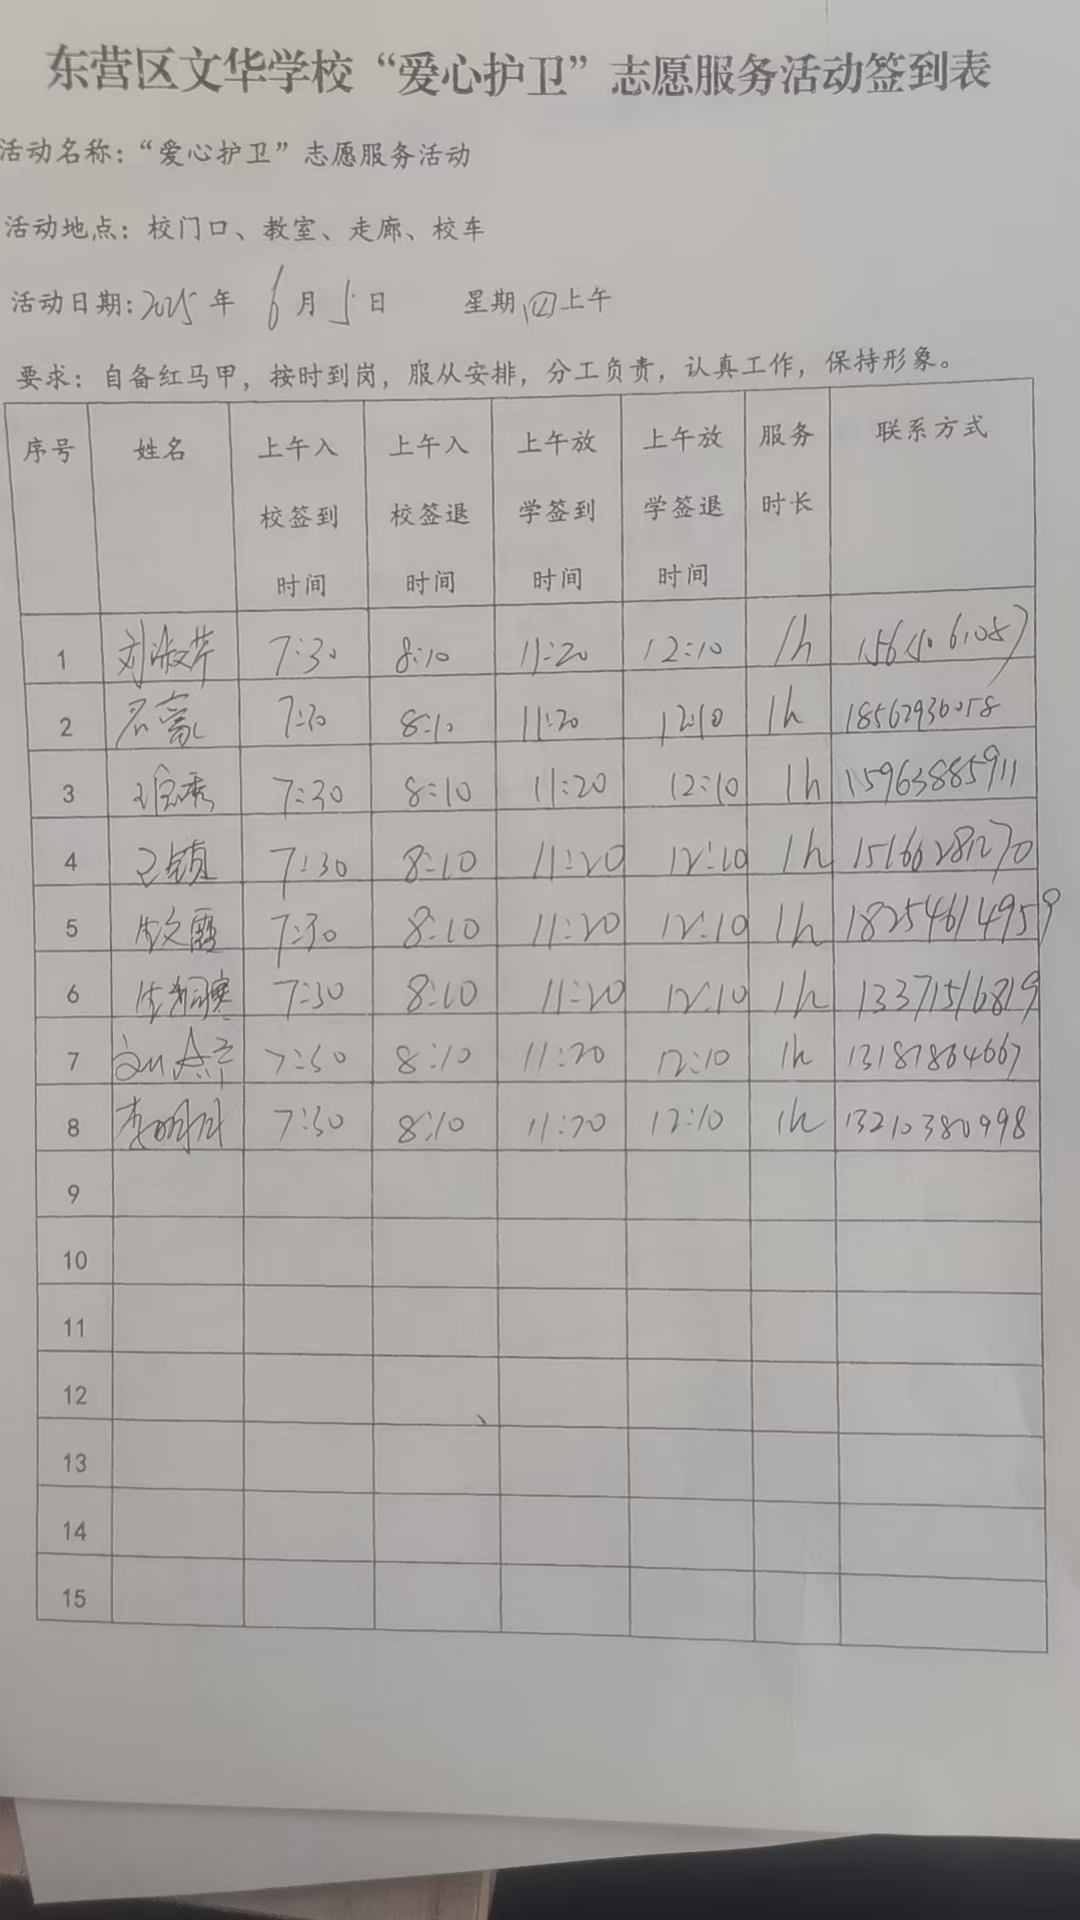 东营区文华学校“爱心护卫”志愿服务活动签到表
活动名称：“爱心护卫”志愿服务活动
活动地点：校门口、教室、走廊、校车
活动日期：2025年 6月5日 星期四上午
要求：自备红马甲，按时到岗，服从安排，分工负责，认真工作，保持形象。
序号 姓名 上午入校签到时间 上午入校签退时间 上午放学签到时间 上午放学签退时间 服务时长 联系方式
1 刘淑芹 7:30 8:10 11:20 12:10 1h
2 7:30 8:10 11:20 12:10 1h 18562936058
3 7:30 8:10 11:20 12:10 1h 15963885911
4 7:30 8:10 11:20 12:10 1h 15166281270
5 7:30 8:10 11:20 12:10 1h 18254614959
6 7:30 8:10 11:20 12:10 1h 13371516819
7 7:30 8:10 11:20 12:10 1h 13181864667
8 李明月 7:30 8:10 11:20 12:10 1h 13210380998
9
10
11
12
13
14
15